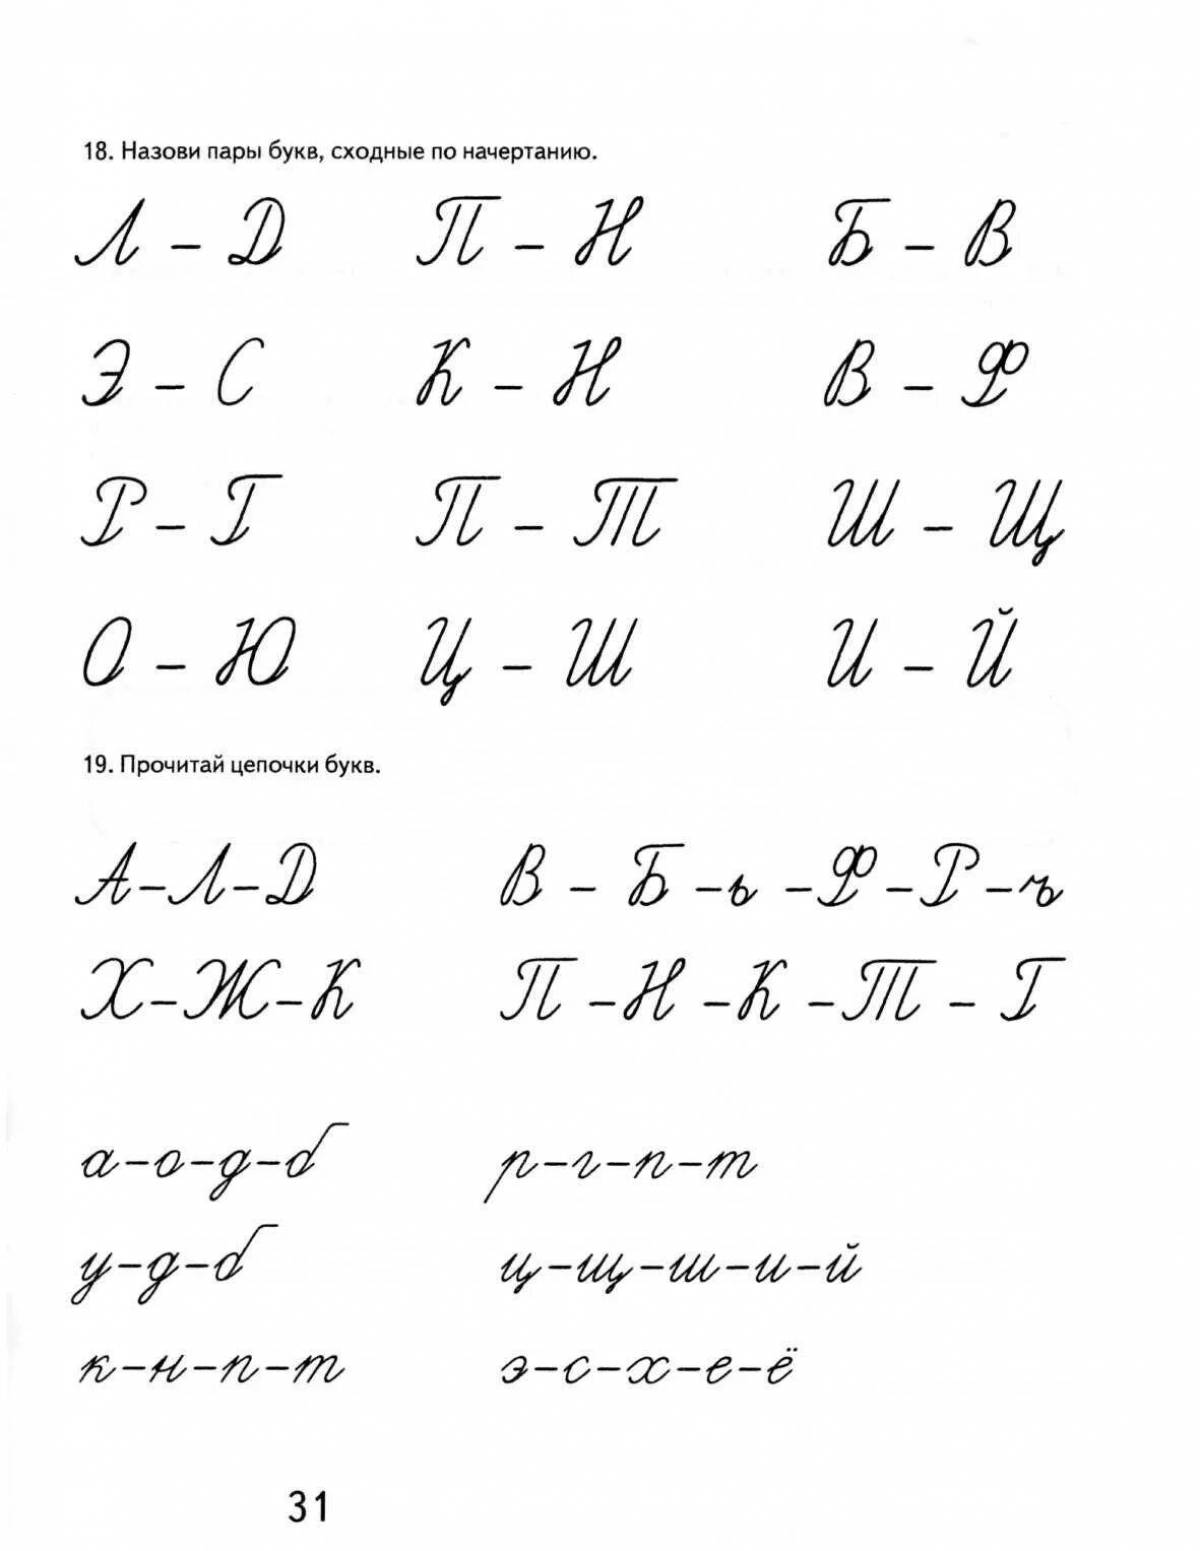 18. Назови пары букв, сходные по начертанию.
Л – Д П – Н Б – В
Э – С К – Н В – Ф
Р – Г П – Т Ш – Щ
О – Ю Ц – Ш И – Й
19. Прочитай цепочки букв.
А–Л–Д В – Б –ь –Ф–Р–ъ
Х–Ж–К П –Н –К –Т – Г
а–о–д–б р–г–п–т
у–д–б ц–щ–ш–и–й
к–н–п–т э–с–х–е–ё
31